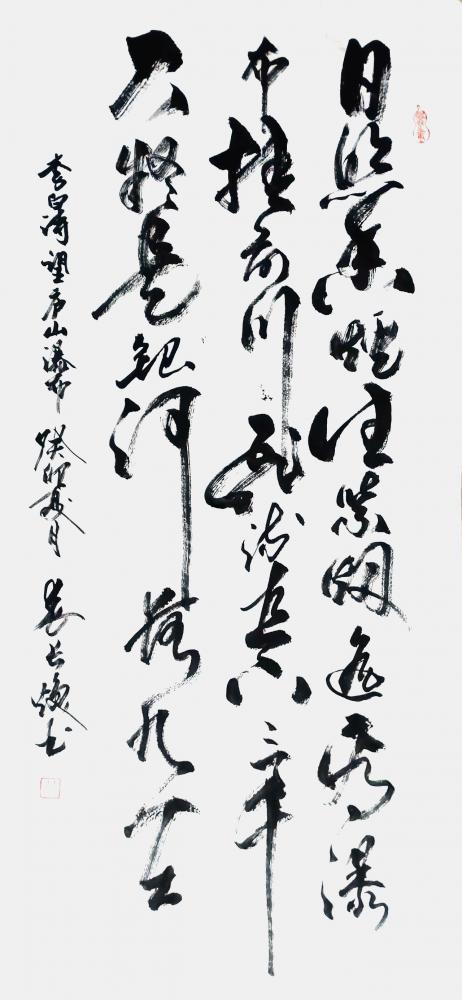 日照香炉生紫烟遥看瀑
布挂前川飛流直下三千
尺疑是銀河落九天
李白詩望庐山瀑布 癸卯夏月 长焕书